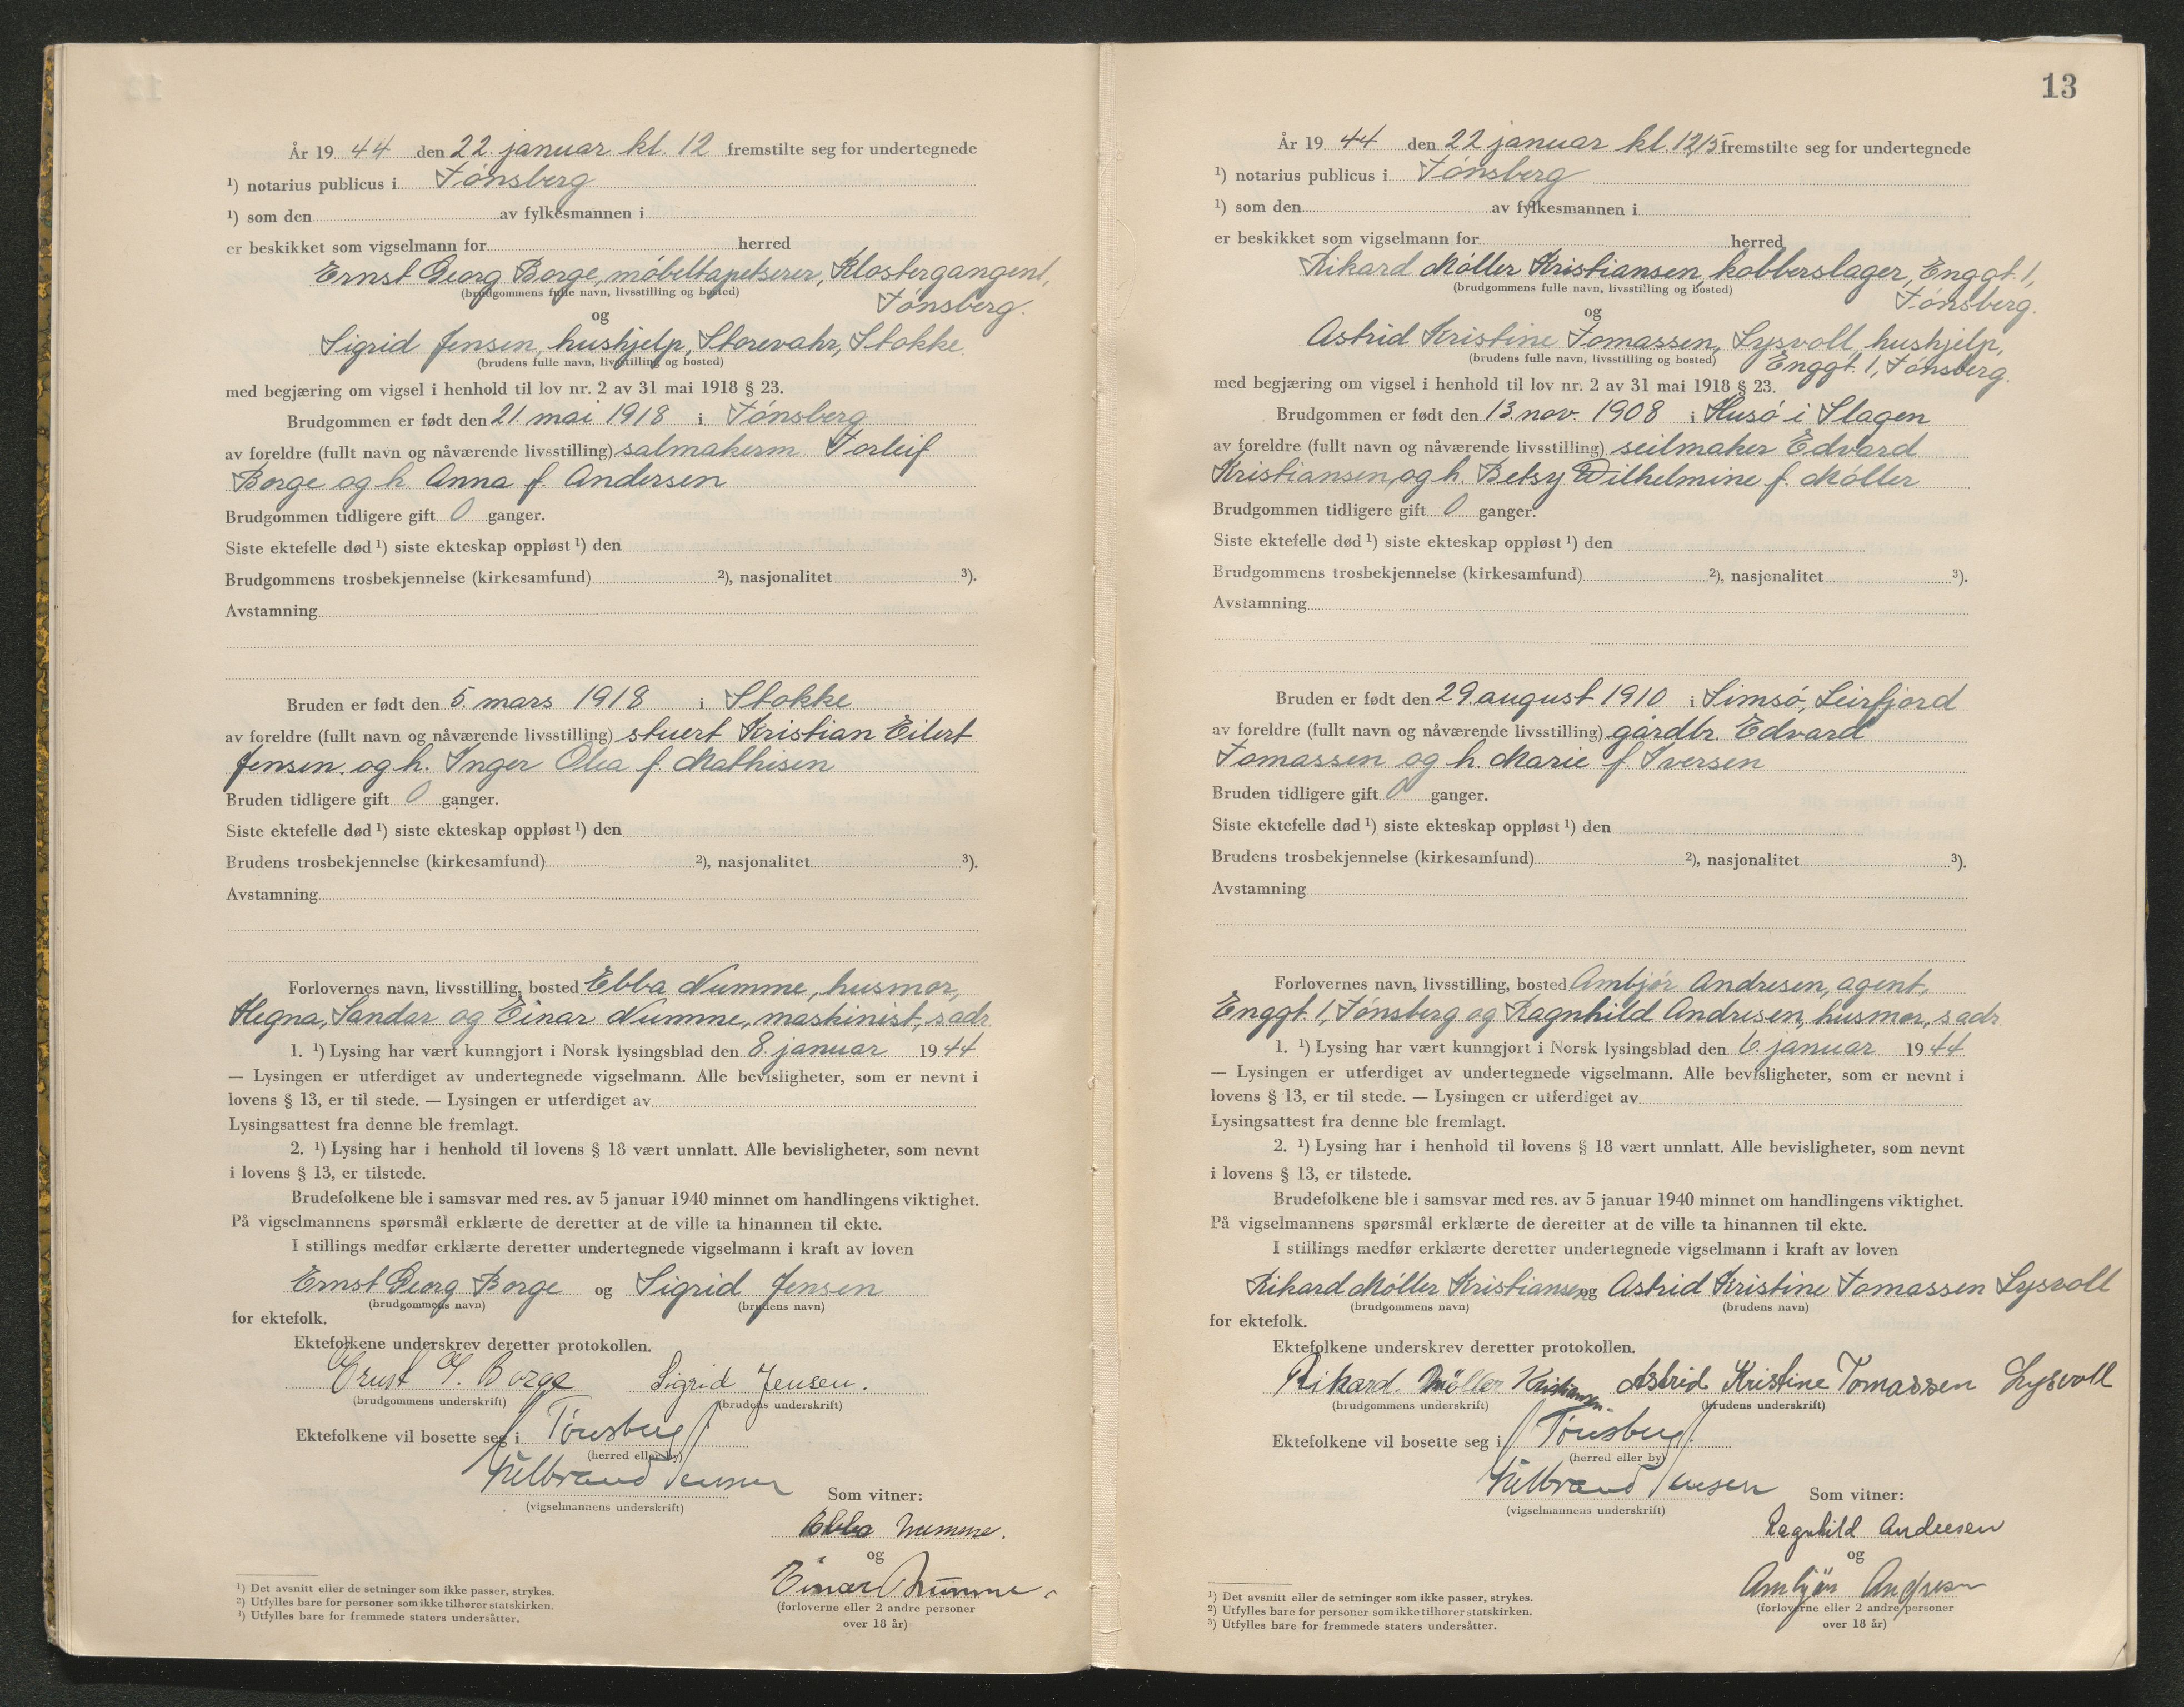 År 19 44 den 22. januar kl. 12 fremstilte seg for undertegnede
¹) notarius publicus i Tønsberg
¹) som den av fylkesmannen i
er beskikket som vigselmann for herred
Ernst Georg Borge, møbeltapetserer, Klostergangen 1,
(brudgommens fulle navn, livsstilling og bosted)
Tønsberg.
og
Sigrid Jensen, hushjelp, Storevahr, Stokke
(brudens fulle navn, livsstilling og bosted)
med begjæring om vigsel i henhold til lov nr. 2 av 31 mai 1918 § 23.
Brudgommen er født den 21. mai 1918 i Tønsberg
av foreldre (fullt navn og nåværende livsstilling) salmakerm Torleif
Borge og h. Anna f. Andersen
Brudgommen tidligere gift 0 ganger.
Siste ektefelle død ¹) siste ekteskap oppløst ¹) den
Brudgommens trosbekjennelse (kirkesamfund) ²), nasjonalitet ³).
Avstamning
Bruden er født den 5. mars 1918 i Stokke
av foreldre (fullt navn og nåværende livsstilling) stuert Kristian Eilert
Jensen og h. Inger Olea f. Mathisen
Bruden tidligere gift 0 ganger.
Siste ektefelle død ¹) siste ekteskap oppløst ¹) den
Brudens trosbekjennelse (kirkesamfund) ²), nasjonalitet ³).
Avstamning
Forlovernes navn, livsstilling, bosted Ebba Numme, husmor,
Hegna, Sandar og Einar Numme, maskinist, s adr.
1. ¹) Lysing har vært kunngjort i Norsk lysingsblad den 8. januar 19 44
— Lysingen er utferdiget av undertegnede vigselmann. Alle bevisligheter, som er nevnt i
lovens § 13, er til stede. — Lysingen er utferdiget av
Lysingsattest fra denne ble fremlagt.
2. ¹) Lysing har i henhold til lovens § 18 vært unnlatt. Alle bevisligheter, som nevnt
i lovens § 13, er tilstede.
Brudefolkene ble i samsvar med res. av 5 januar 1940 minnet om handlingens viktighet.
På vigselmannens spørsmål erklærte de deretter at de ville ta hinannen til ekte.
I stillings medfør erklærte deretter undertegnede vigselmann i kraft av loven
Ernst Georg Borge og Sigrid Jensen
(brudgommens navn) (brudens navn)
for ektefolk.
Ektefolkene underskrev deretter protokollen.
Ernst G. Borge Sigrid Jensen.
(brudgommens underskrift) (brudens underskrift)
Ektefolkene vil bosette seg i Tønsberg
(herred eller by)
(vigselmannens underskrift)
Som vitner:
Ebba Numme.
og
Einar Numme
(forloverne eller 2 andre personer
over 18 år)
¹) Det avsnitt eller de setninger som ikke passer, strykes.
²) Utfylles bare for personer som ikke tilhører statskirken.
³) Utfylles bare for fremmede staters undersåtter.
13
År 19 44 den 22 januar kl. 12,15 fremstilte seg for undertegnede
¹) notarius publicus i Tønsberg
¹) som den av fylkesmannen i
er beskikket som vigselmann for herred
Rikard Møller Kristiansen, kobberslager, Enggt. 1,
(brudgommens fulle navn, livsstilling og bosted)
Tønsberg.
og
Astrid Kristine Tomassen, Lysvoll, hushjelp,
(brudens fulle navn, livsstilling og bosted) Enggt. 1, Tønsberg.
med begjæring om vigsel i henhold til lov nr. 2 av 31 mai 1918 § 23.
Brudgommen er født den 13. nov. 1908 i Husø i Slagen
av foreldre (fullt navn og nåværende livsstilling) seilmaker Edvard
Kristiansen, og h. Betsy Wilhelmine f. Møller
Brudgommen tidligere gift 0 ganger.
Siste ektefelle død ¹) siste ekteskap oppløst ¹) den
Brudgommens trosbekjennelse (kirkesamfund) ²), nasjonalitet ³).
Avstamning
Bruden er født den 29. august 1910 i Simsø, Leirfjord
av foreldre (fullt navn og nåværende livsstilling) gårdbr. Edvard
Tomassen og h. Marie f. Iversen
Bruden tidligere gift 0 ganger.
Siste ektefelle død ¹) siste ekteskap oppløst ¹) den
Brudens trosbekjennelse (kirkesamfund) ²), nasjonalitet ³).
Avstamning
Forlovernes navn, livsstilling, bosted Ambjør Andresen, agent,
Enggt. 1, Tønsberg og Ragnhild Andresen, husmor, s adr
1. ¹) Lysing har vært kunngjort i Norsk lysingsblad den 6. januar 19 44
— Lysingen er utferdiget av undertegnede vigselmann. Alle bevisligheter, som er nevnt i
lovens § 13, er til stede. — Lysingen er utferdiget av
Lysingsattest fra denne ble fremlagt.
2. ¹) Lysing har i henhold til lovens § 18 vært unnlatt. Alle bevisligheter, som nevnt
i lovens § 13, er tilstede.
Brudefolkene ble i samsvar med res. av 5 januar 1940 minnet om handlingens viktighet.
På vigselmannens spørsmål erklærte de deretter at de ville ta hinannen til ekte.
I stillings medfør erklærte deretter undertegnede vigselmann i kraft av loven
Rikard Møller Kristiansen og Astrid Kristine Tomassen Lysvoll
(brudgommens navn) (brudens navn)
for ektefolk.
Ektefolkene underskrev deretter protokollen.
Rikard Møller Kristiansen Astrid Kristine Tomassen Lysvoll
(brudgommens underskrift) (brudens underskrift)
Ektefolkene vil bosette seg i Tønsberg
(herred eller by)
(vigselmannens underskrift)
Som vitner:
Ragnhild Andresen
og
Ambjør Andresen
(forloverne eller 2 andre personer
over 18 år)
¹) Det avsnitt eller de setninger som ikke passer, strykes.
²) Utfylles bare for personer som ikke tilhører statskirken.
³) Utfylles bare for fremmede staters undersåtter.